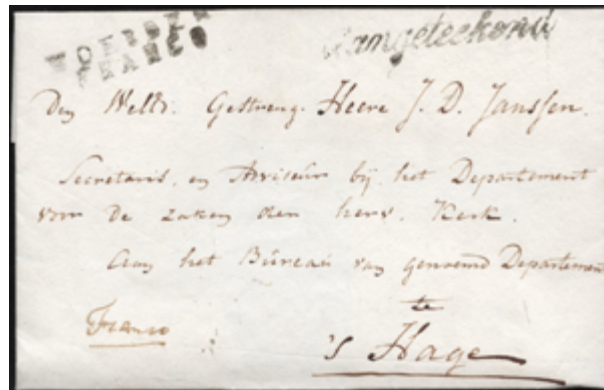 WOERDEN
FRANCO
Aangeteekend
Den WelEd. Gestreng. Heere J. D. Janssen.
Secretaris en Adviseur bij het Departement
voor de zaken der herv. Kerk.
Aan het Bureau van genoemd Departement
te
Franco
's Hage